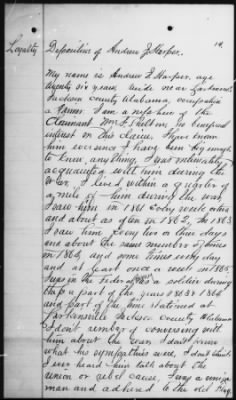 14.
Loyalty Deposition of Andrew J Harper.
My name is Andrew J Harper, age
twenty six years, reside near Larkinsville
Jackson County Alabama, occupation
a farmer. I am a nephew of the
Claimant Wm. no beneficial
interest in this claim. I have known
him ever since I have been big enough
to know anything. I was intimately
acquainted with him during the
War. I lived within a quarter of
a mile of him during the war,
I saw him in 1861 every week or two
and about as often in 1862, In 1863
I saw him every two or three days
and about the same number of times
in 1864, and some times every day
and at least once a week in 1865,
I was in the Federal as a soldier during
the part of the years 1863 & 1864
and part of the time stationed at
Larkinsville Jackson County Alabama
I don't rember of conversing with
him about the war. I don't know
what his sympathies were, I don't think
I ever heard him talk about the
union or rebel cause, I was a union
man and adhered to the old flag